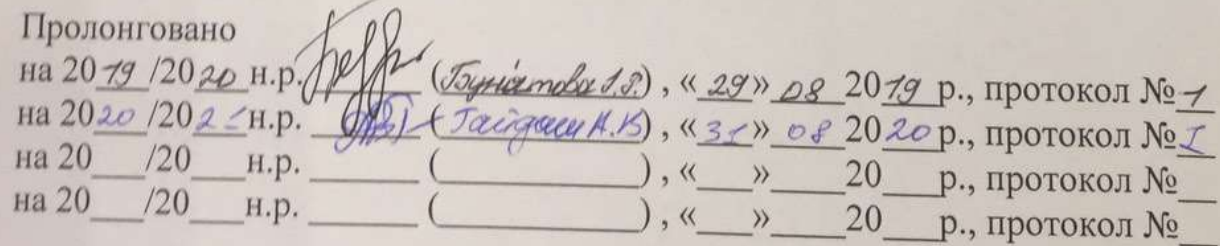 Пролонговано
на 2019 /2020 н.р. (Буніатова Л.Р.) , « 29» 08 2019 р., протокол №1
на 2020 /2021 н.р. (Гайдаш А.В) , «31» 08 2020 р., протокол №1
на 20___/20___н.р. _______ (______________) , «___»_____20___р., протокол №___
на 20___/20___н.р. _______ (______________) , «___»_____20___р., протокол №___